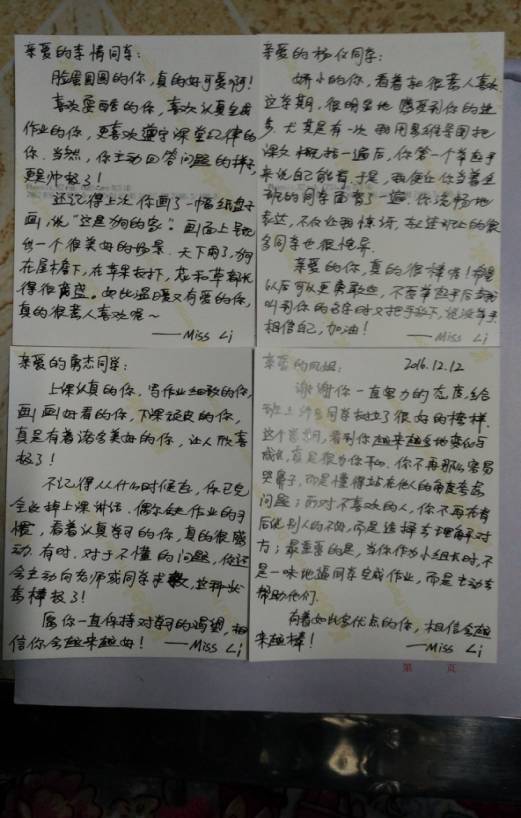 亲爱的李倩同学：
脸蛋圆圆的你，真的好可爱啊！
喜欢耍酷的你，喜欢认真完成
作业的你，更喜欢遵守课堂纪律的
你。当然，你主动回答问题的样子，
更是帅极了！
还记得上次你画了一幅纸盘子
画，说“这是狗的家”。画面上呈现
出一个很美好的场景，天下雨了，狗
在屋檐下，在苹果树下，花和草都长
得很茂盛。如此温暖又有爱的你，
真的很惹人喜欢呢~
——Miss Li
亲爱的杨仪同学：
娇小的你，看着就很惹人喜欢。
这学期，很明显地感受到你的进
步。尤其是有一次，我用思维导图把
课文概括一遍后，你第一个举起手
来说自己能背。于是，我便让你当着全
班的同学面背了一遍。你流畅地
表达，不仅让我惊讶，就连班上的众
多同学也很诧异。
亲爱的你，真的很棒呢！希望
以后可以更勇敢些，不要举起手后当我
叫到你的名字时又把手放下，说没举手。
相信自己，加油！
——Miss Li
亲爱的勇杰同学：
上课认真的你，写作业细致的你，
画画好看的你，下课顽皮的你，
真是有着诸多美好的你，让人欣喜
极了！
不记得从什么时候起，你已完
全改掉上课讲话、偶尔缺作业的习
惯，看着认真学习的你，真的很感
动。有时，对于不懂的问题，你还
会主动向老师或同学求教，这种状
态棒极了！
愿你一直保持对学习的渴望，相
信你会越来越好！——Miss Li
亲爱的凤姐： 2016.12.12
谢谢你一直努力的态度，给
班上的同学树立了很好的榜样。
这个学期，看到你越来越多地变化与
成长，真是很为你开心。你不再那么容易
哭鼻子，而是懂得站在他人的角度考虑
问题；面对不喜欢的人，你不再在背
后说别人的不好，而是选择去理解对
方；最重要的是，当你作为小组长时，不
是一味地逼同学完成作业，而是主动去
帮助他们。
有着如此多优点的你，相信会越
来越棒！ ——Miss Li
第 页